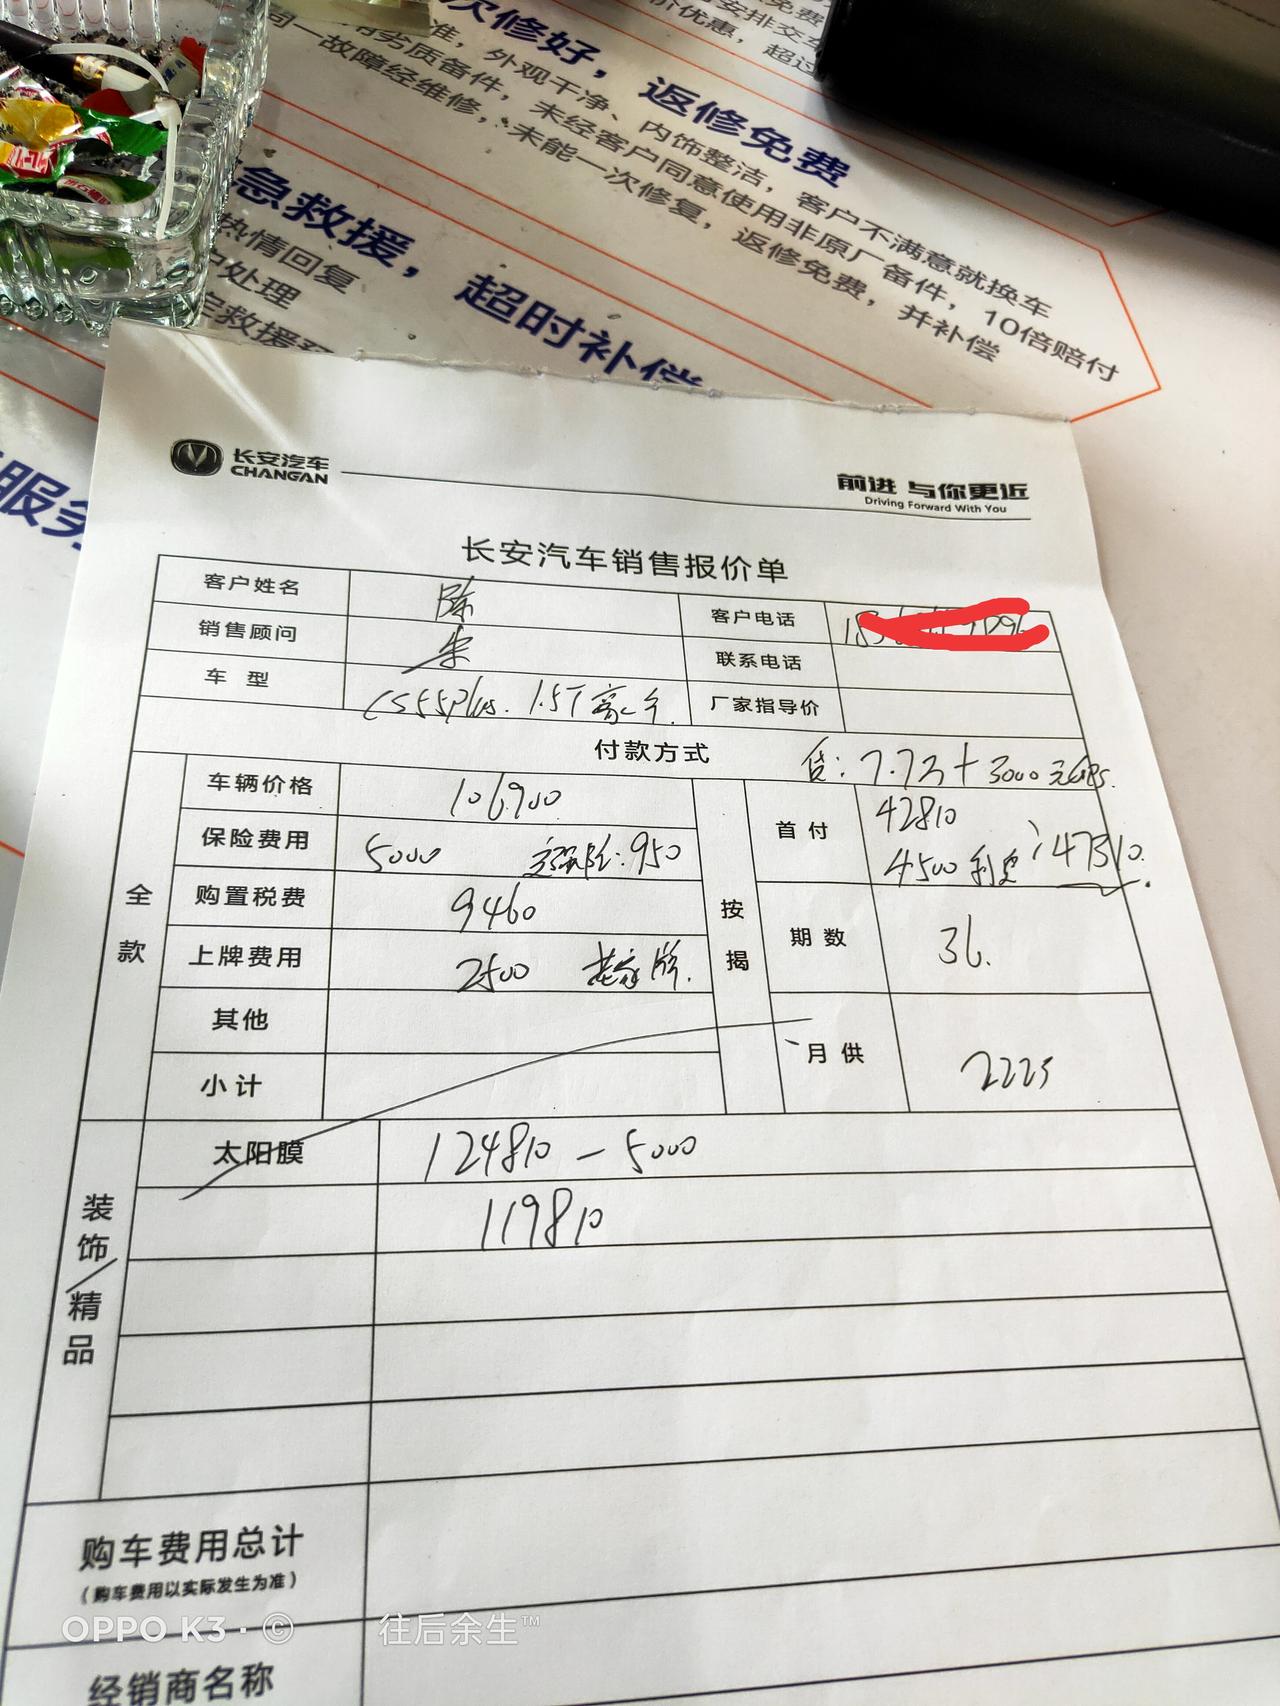 次修好，返修免费
准，外观干净、内饰整洁，客户不满意就换车
劣质备件，未经客户同意使用非原厂备件，10倍赔付
同一故障经维修，未能一次修复，返修免费，并补偿
急救援，超时补偿
热情回复
处理
服务
长安汽车
CHANGAN
前进 与你更近
Driving Forward With You
长安汽车销售报价单
客户姓名 陈 客户电话
销售顾问 联系电话
车型 CS55plus. 1.5T 豪 厂家指导价
付款方式 贷：7.7万+3000元GPS.
全款
车辆价格 106900
保险费用 5000 交强险：950
购置税费 9460
上牌费用 2500 牌.
其他
小计
按揭
首付 42810
4500利息 47310.
期数 36.
月供 2225
装饰/精品
太阳膜 124810-5000
119810
购车费用总计
（购车费用以实际发生为准）
经销商名称
OPPO K3·© 往后余生™